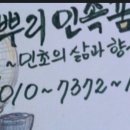 뿌리 민속품
~민초의 삶과 향
010~7372~1